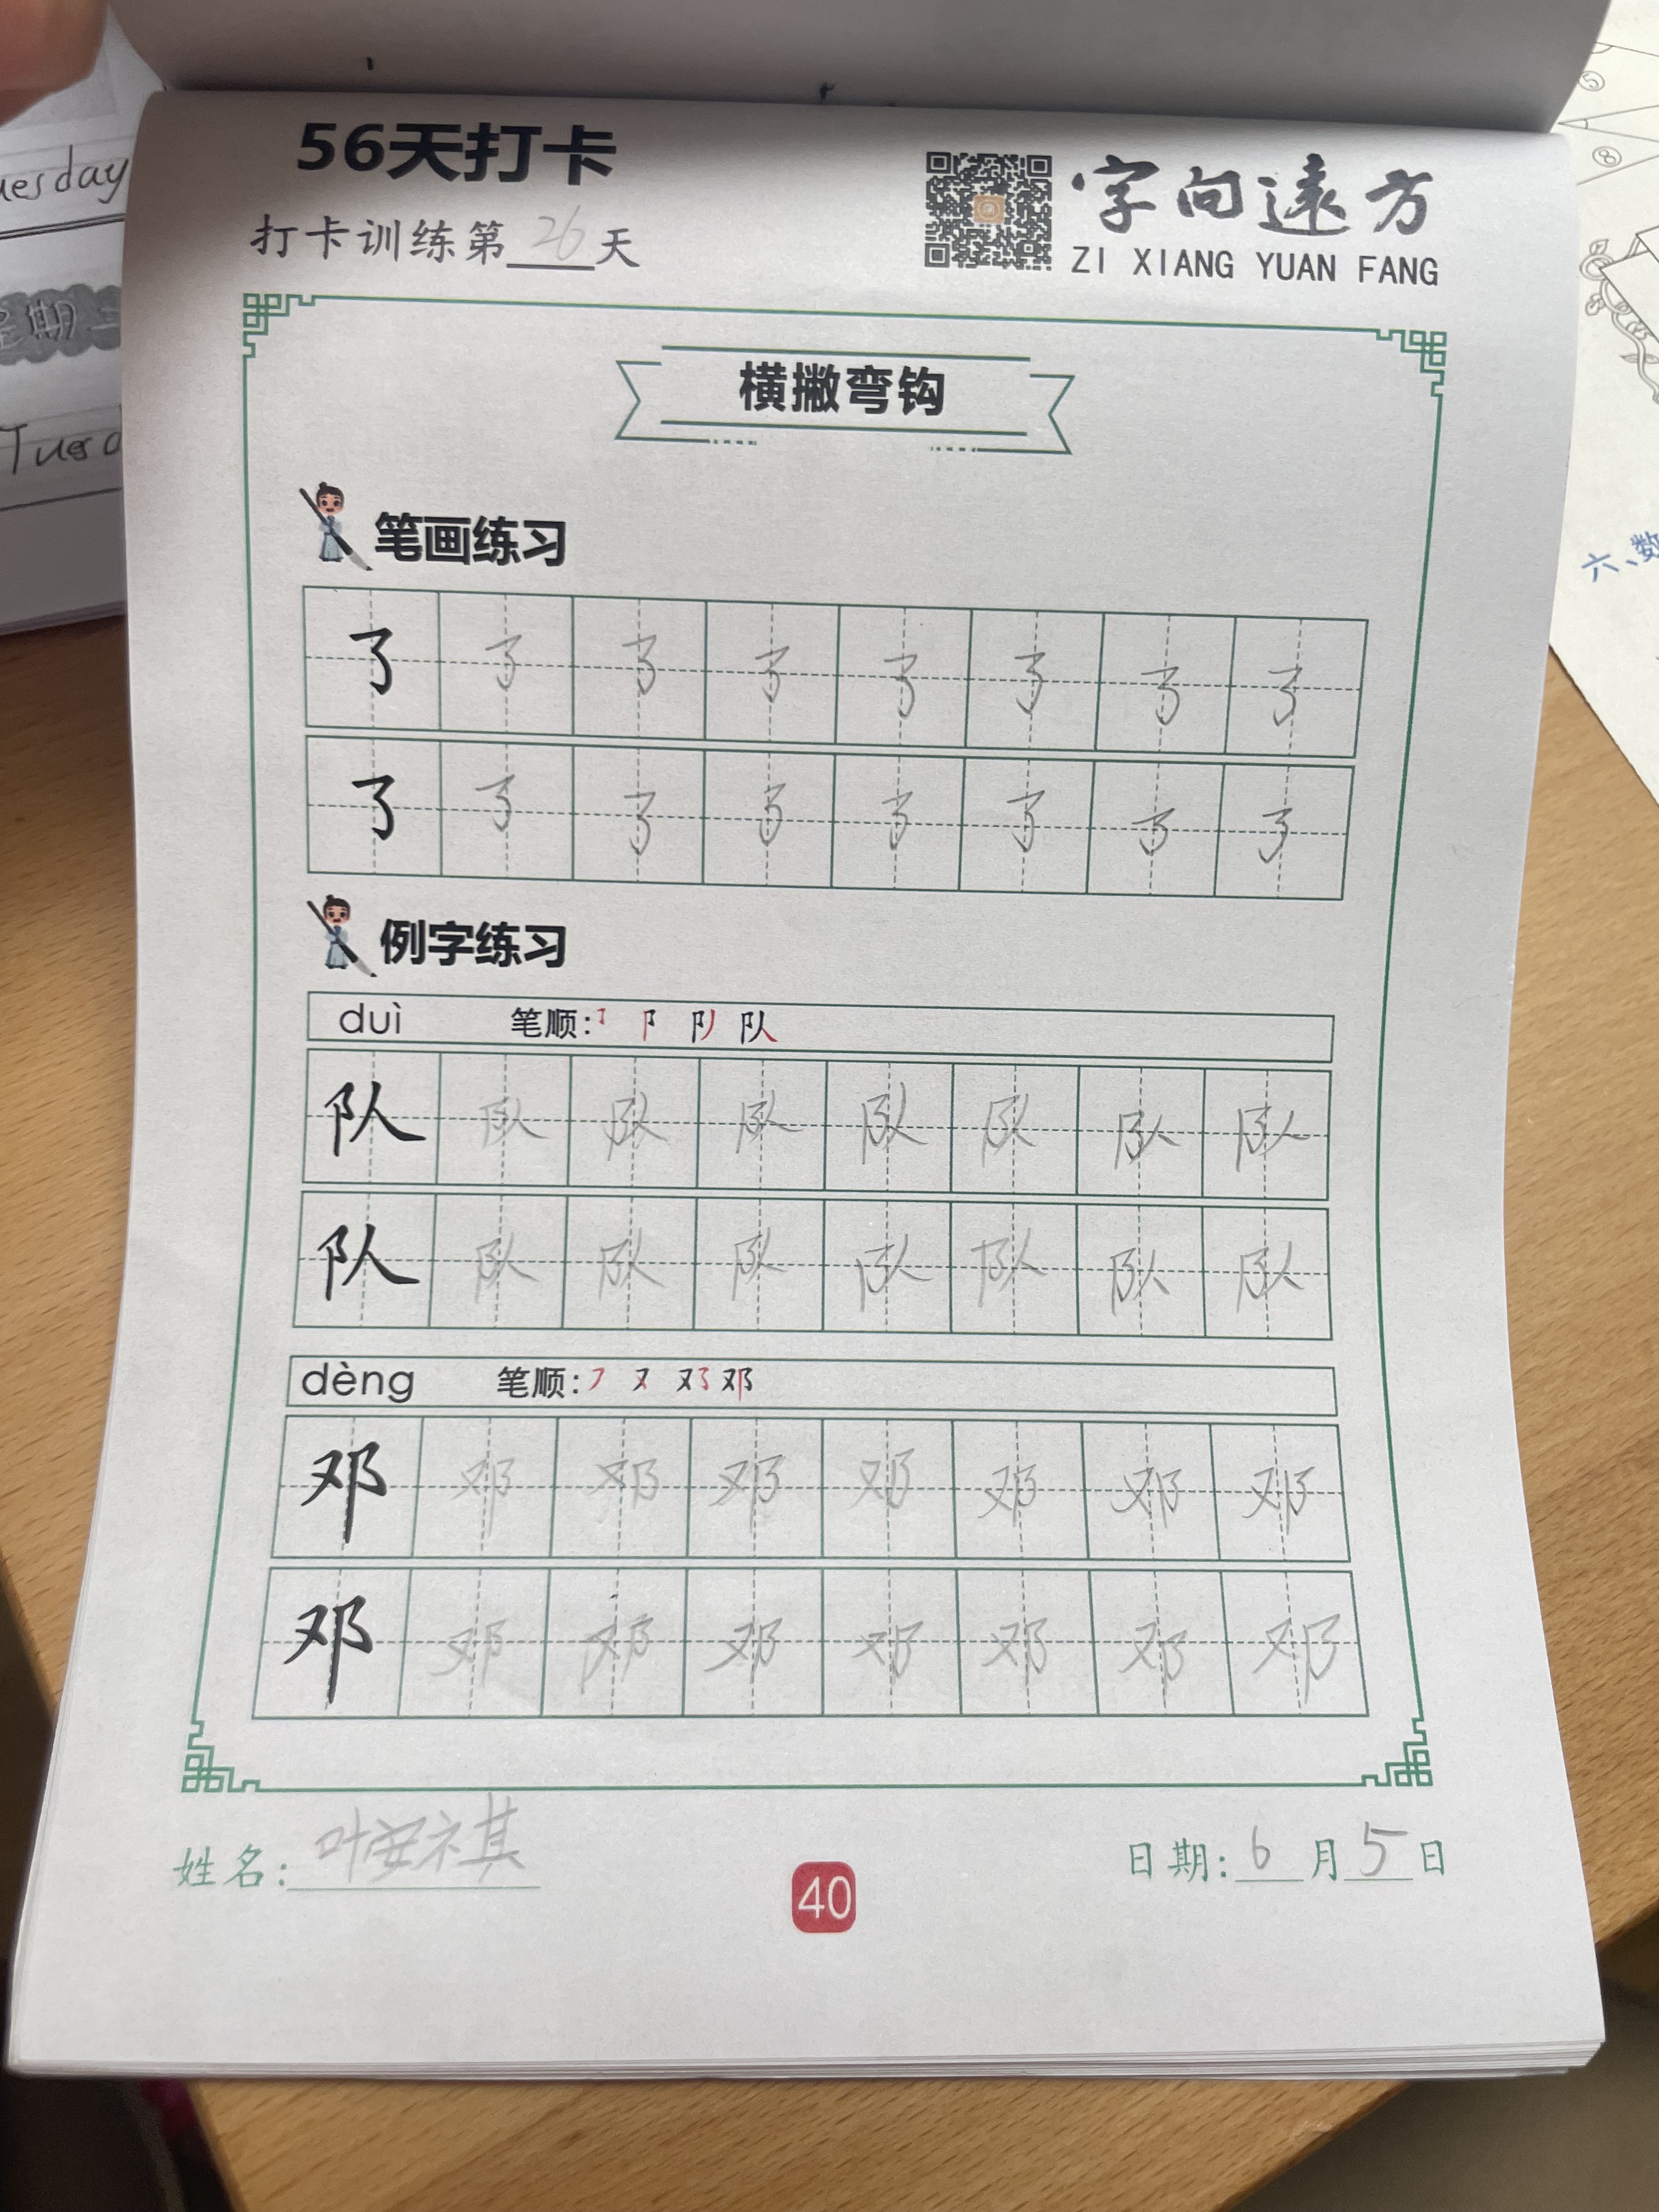 56天打卡
打卡训练第26天
字向遠方
ZI XIANG YUAN FANG
uesday
星期二
Tuesd
⑤
⑧
六、数
横撇弯钩
笔画练习
㇌ ㇌ ㇌ ㇌ ㇌ ㇌ ㇌ ㇌
㇌ ㇌ ㇌ ㇌ ㇌ ㇌ ㇌ ㇌
例字练习
duì 笔顺: 队
队 队 队 队 队 队 队 队
队 队 队 队 队 队 队 队
dèng 笔顺: 邓
邓 邓 邓 邓 邓 邓 邓 邓
邓 邓 邓 邓 邓 邓 邓 邓
姓名: 叶安祺
40
日期: 6月5日